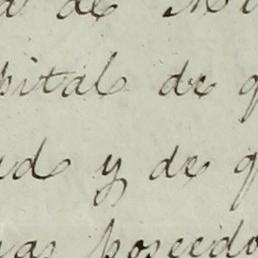 a de M
pital de q
ed y de q
as poseedo